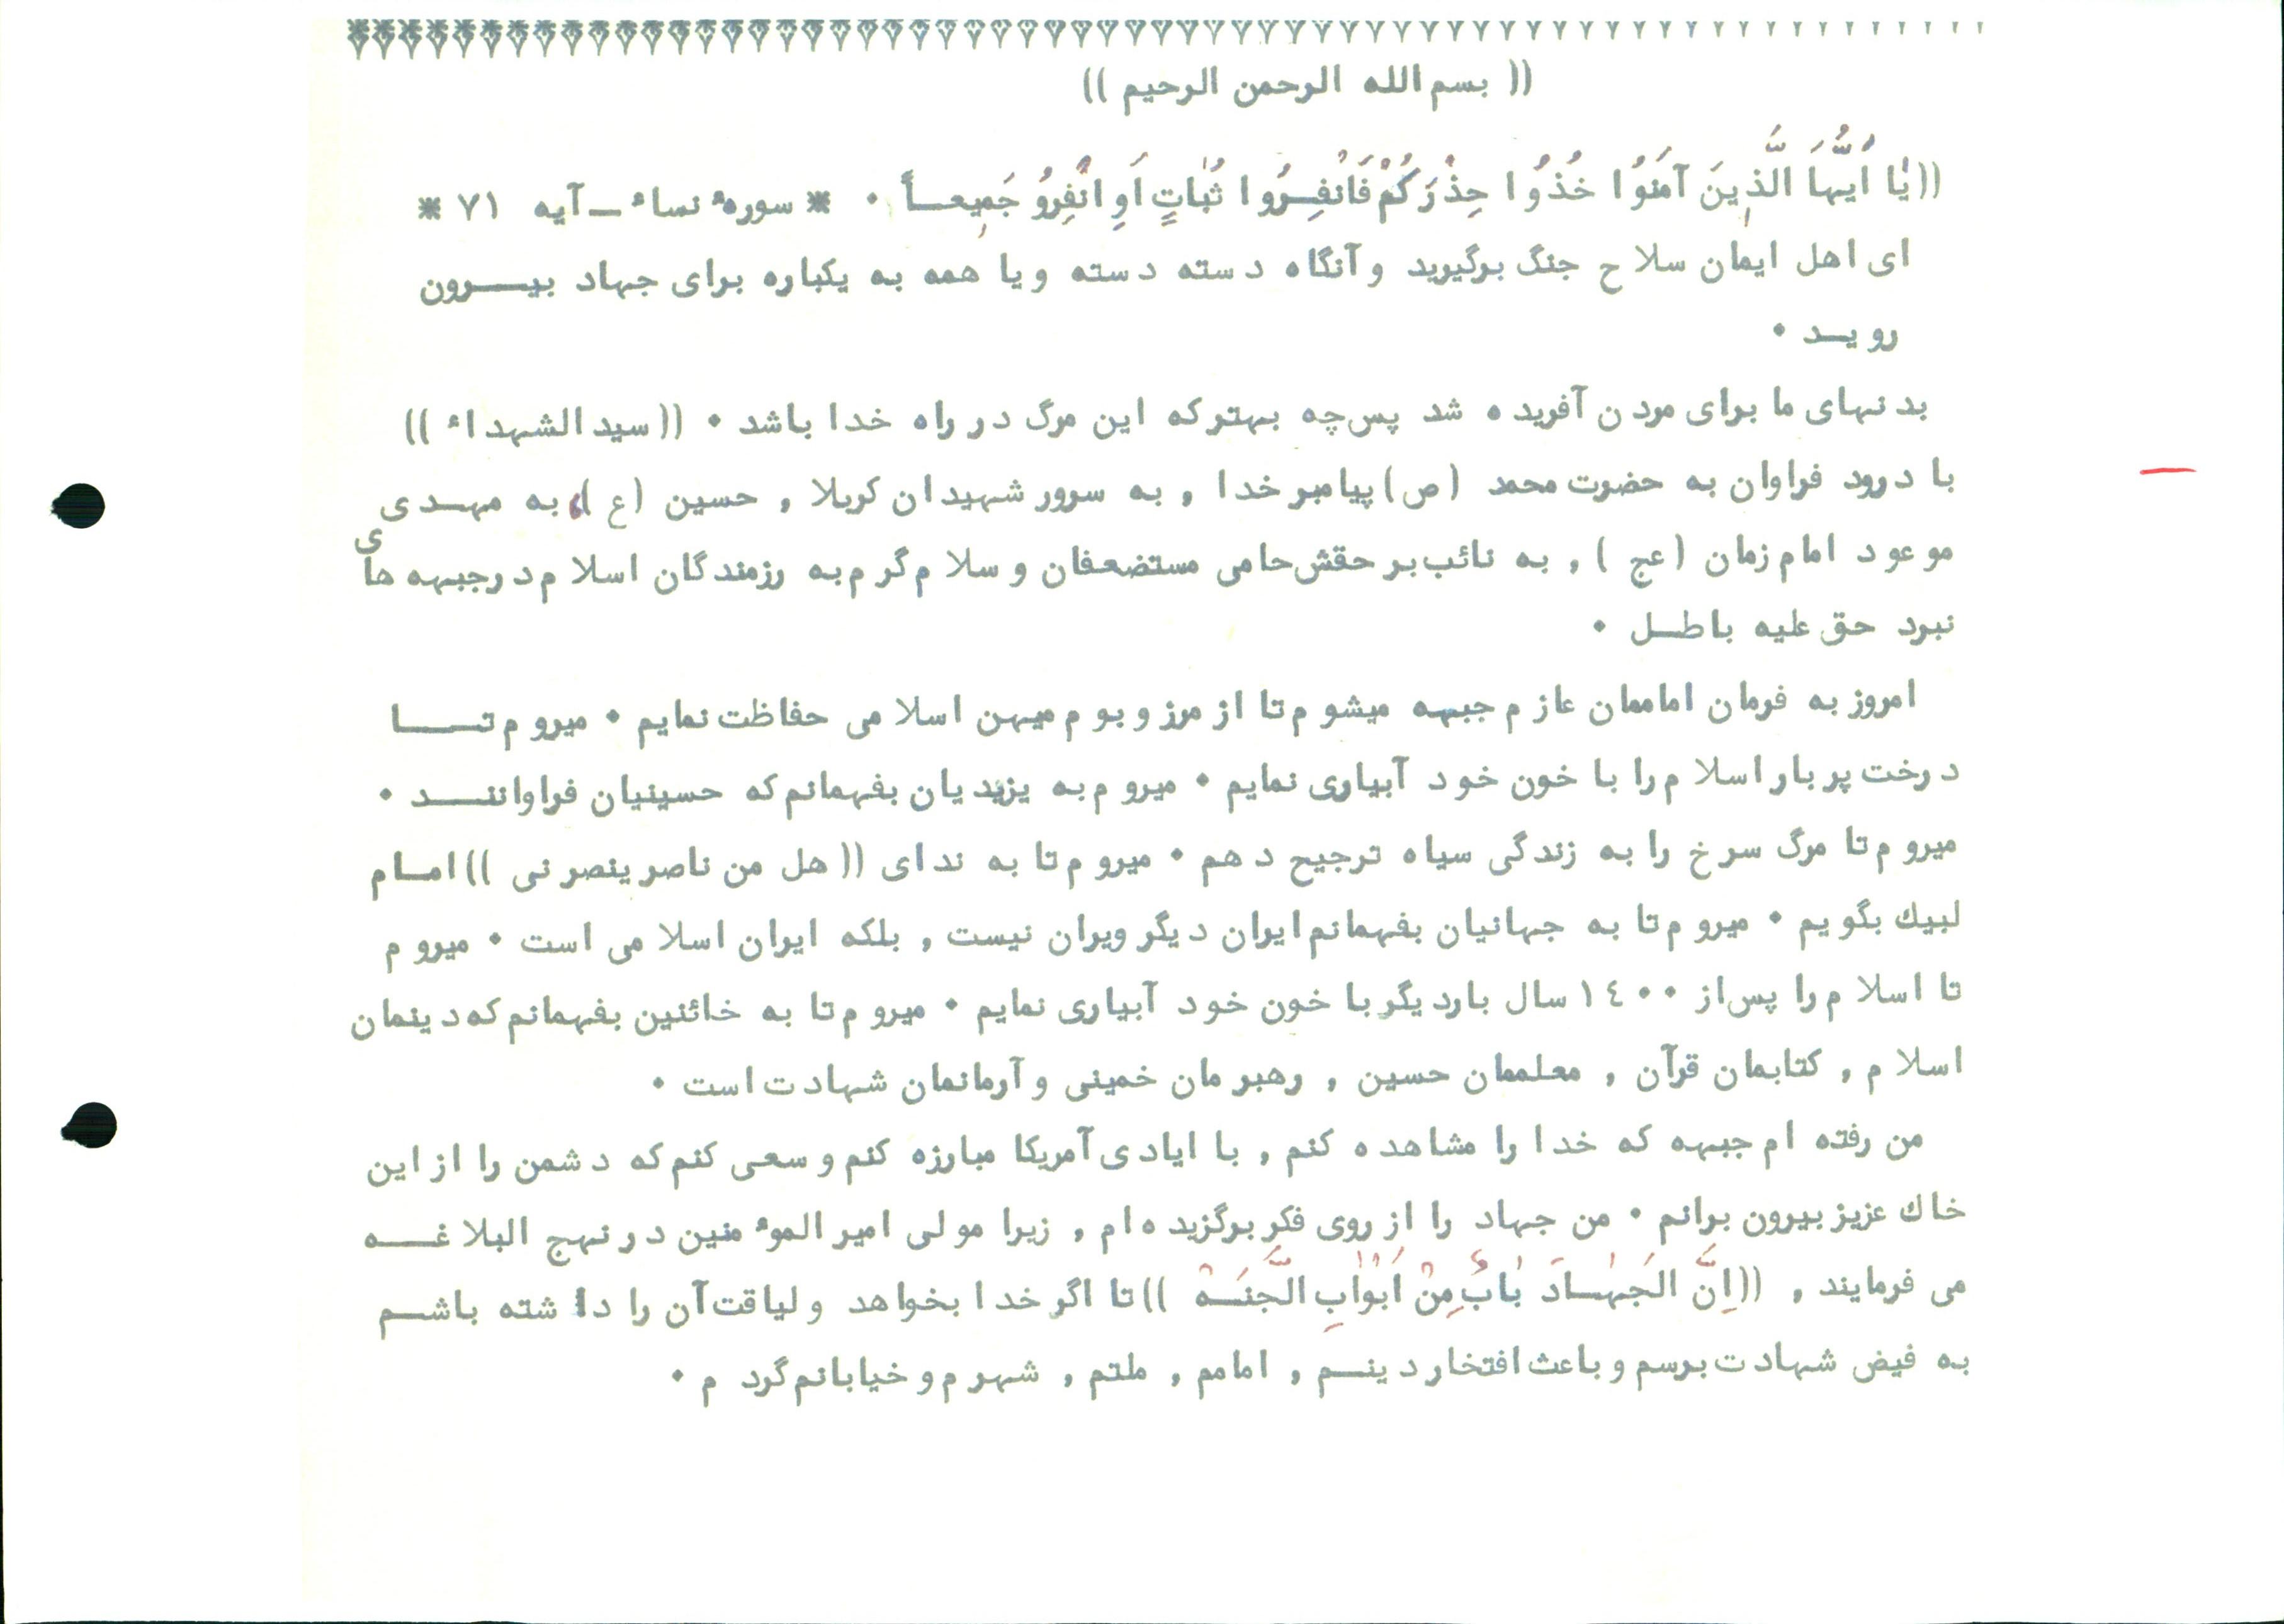 (( بسم الله الرحمن الرحیم ))
((یٰا اَیُّهاَ الَّذینَ آمَنوُا خُذوُا حِذْرَکُمْ فَانْفِــرُوا ثُبٰاتٍ اَوِ انْفِروُ جَمیعــاً ٠ * سورهٔ نساء ــ آیه ٧١ *
ای اهل ایمان سلاح جنگ برگیرید و آنگاه دسته دسته و یا همه به یکباره برای جهاد بیــرون
رویــد ٠
بدنهای ما برای مردن آفریده شد پس چه بهتر که این مرگ در راه خدا باشد ٠ ((سید الشهداء ))
با درود فراوان به حضرت محمد (ص) پیامبر خدا , به سرور شهیدان کربلا , حسین (ع), به مهــدی
موعود امام زمان (عج ) , به نائب بر حقش حامی مستضعفان و سلام گرم به رزمندگان اسلام در جبهه های
نبرد حق علیه باطــل ٠
امروز به فرمان اماممان عازم جبهه میشوم تا از مرز و بوم میهن اسلامی حفاظت نمایم ٠ میروم تــا
درخت پربار اسلام را با خون خود آبیاری نمایم ٠ میروم به یزیدیان بفهمانم که حسینیان فراواننــد ٠
میروم تا مرگ سرخ را به زندگی سیاه ترجیح دهم ٠ میروم تا به ندای ((هل من ناصر ینصرنی )) امــام
لبیك بگویم ٠ میروم تا به جهانیان بفهمانم ایران دیگر ویران نیست , بلکه ایران اسلامی است ٠ میروم
تا اسلام را پس از ١٤٠٠ سال بار دیگر با خون خود آبیاری نمایم ٠ میروم تا به خائنین بفهمانم که دینمان
اسلام , کتابمان قرآن , معلممان حسین , رهبرمان خمینی و آرمانمان شهادت است ٠
من رفته ام جبهه که خدا را مشاهده کنم , با ایادی آمریکا مبارزه کنم و سعی کنم که دشمن را از این
خاك عزیز بیرون برانم ٠ من جهاد را از روی فکر برگزیده ام , زیرا مولی امیر الموٴمنین در نهج البلاغــه
می فرمایند , ((اِنَّ الجَهــادَ بٰابٌ مِنْ اَبْوٰابِ الَّجنَــة )) تا اگر خدا بخواهد و لیاقت آن را داشته باشــم
به فیض شهادت برسم و باعث افتخار دینــم , امامم , ملتم , شهرم و خیابانم گردم ٠